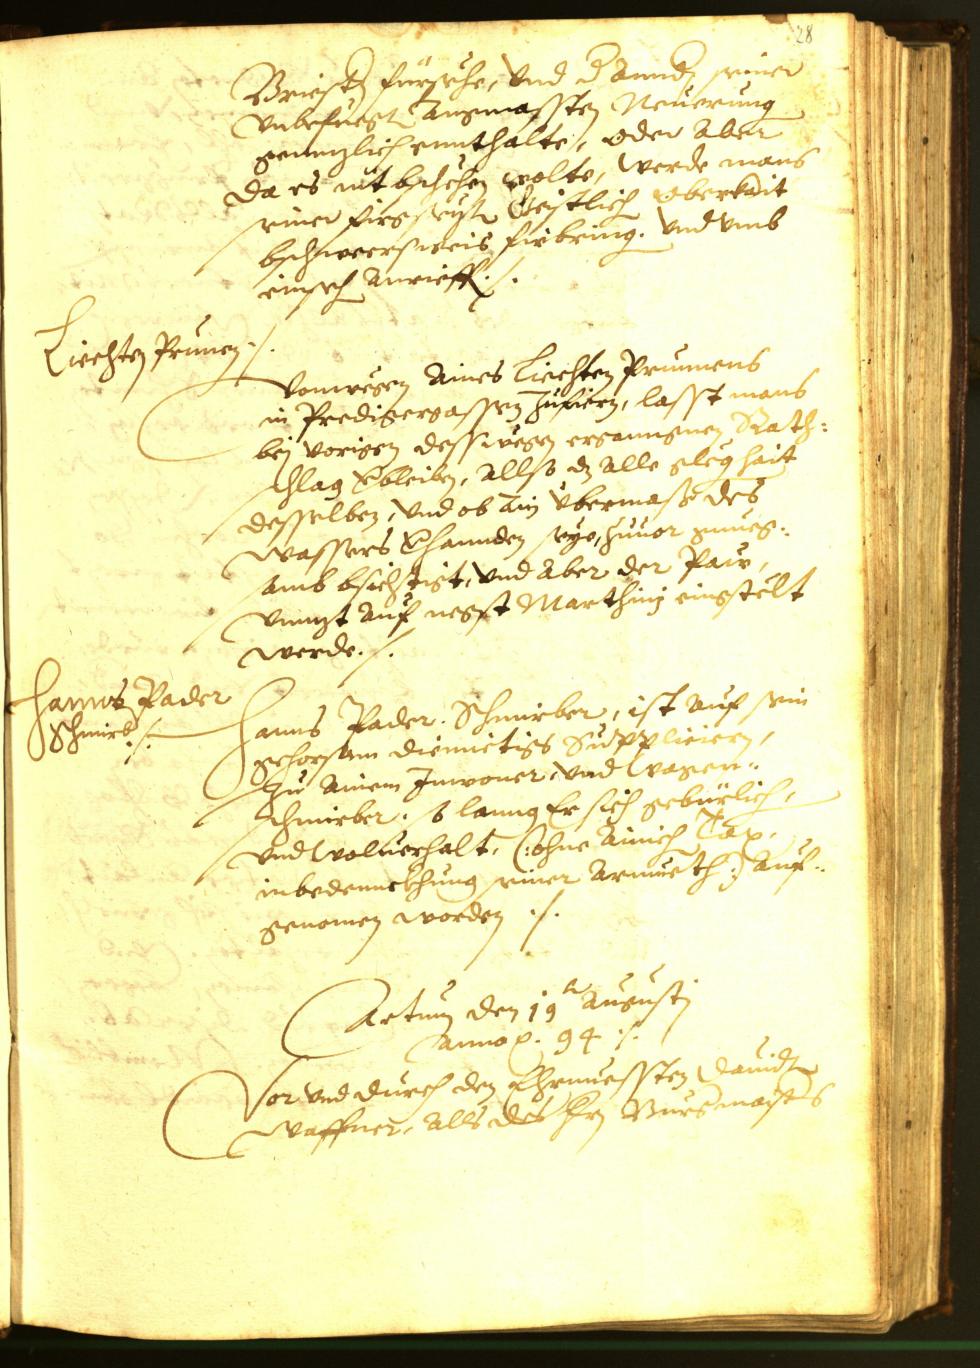 28
Briefs fürsehe, Vnd d Annd seiner
vnbefuegt Angemassten Neuerung
genntzlich ennthalte, oder Aber
da es nit bschehen wolte, werde mans
seiner fürgesetzt Geistlich Oberkait
bschweersweis fürbring. Vnd vmb
einseh Anrieff ./.
Liechten Prunen ./.
Vonwegen Aines Liechten Prunnens
in Predigergassen Zufiern, lasst mans
bej vorigen desswegen erganngnen Rath:
schlag Pleiben, Allso dz alle glegenhait
desselben, Vnd ob Ain Vbermass des
Wassers Vorhannden seye, Zuuor genueg:
samb bsichtigt, Vnd Aber der Paw,
vnnzt auf negst Marthinj eingstelt
werde ./.
Hanns Pader
Schmirb ./.
Hanns Pader. Schmirber, ist auf sein
gehorsam diemietigs Suppliciern,
Zu Ainem Inwoner, Vnd Wagen:
schmirber. so lanng Er sich gebürlich,
Vnd Wolverhalt, (:ohne Ainich Tax,
inbedennckhung seiner Armueth:) Auf:
genomen worden ./.
Actum den 19 Augustj
Anno p. 94 ./.
Vor Vnd durch den Ehrnuessten Dauidt
Waffner, Alls des Hrn Burgmaisters